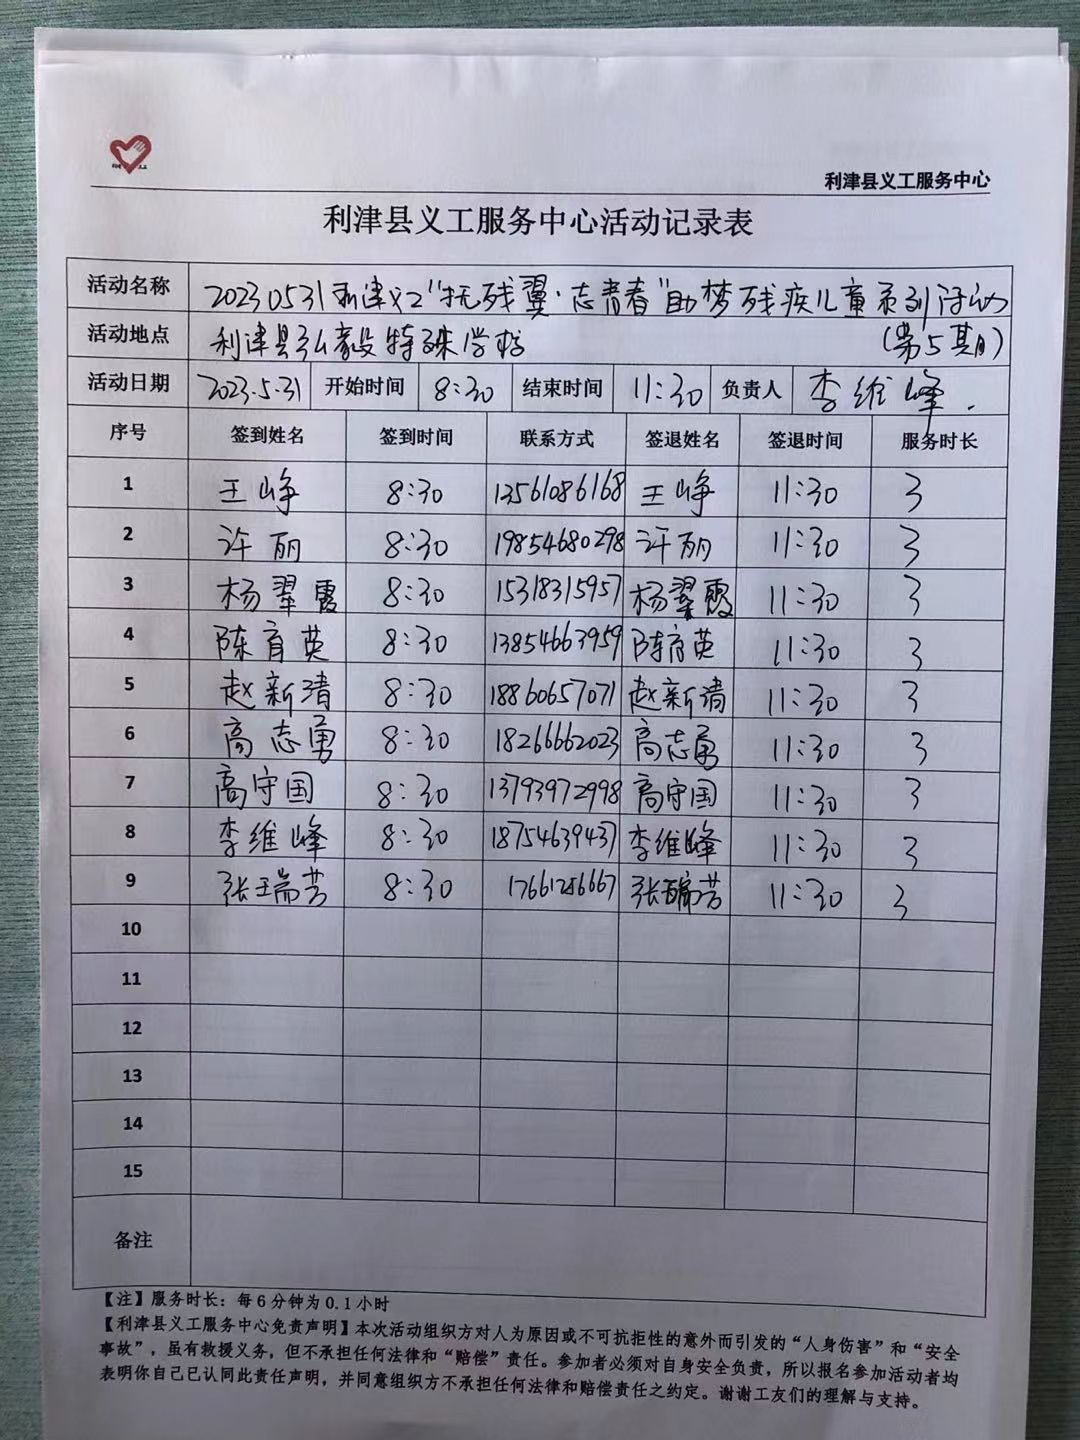 利津县义工服务中心
利津县义工服务中心活动记录表
活动名称 20230531利津义工“抚残翼·志青春”助梦残疾儿童系列活动
活动地点 利津县弘毅特殊学校 (第5期)
活动日期 2023.5.31 开始时间 8:30 结束时间 11:30 负责人 李维峰.
序号 签到姓名 签到时间 联系方式 签退姓名 签退时间 服务时长
1 王峥 8:30 13561086168 王峥 11:30 3
2 许丽 8:30 19854680298 许丽 11:30 3
3 杨翠霞 8:30 15318315957 杨翠霞 11:30 3
4 陈育英 8:30 13854663959 陈育英 11:30 3
5 赵新清 8:30 18860657071 赵新清 11:30 3
6 高志勇 8:30 18266662023 高志勇 11:30 3
7 高守国 8:30 13793972998 高守国 11:30 3
8 李维峰 8:30 18754639437 李维峰 11:30 3
9 张瑞芳 8:30 11:30 3
10
11
12
13
14
15
备注
【注】服务时长：每6分钟为0.1小时
【利津县义工服务中心免责声明】本次活动组织方对人为原因或不可抗拒性的意外而引发的“人身伤害”和“安全
事故”，虽有救援义务，但不承担任何法律和“赔偿”责任。参加者必须对自身安全负责，所以报名参加活动者均
表明你自己已认同此责任声明，并同意组织方不承担任何法律和赔偿责任之约定。谢谢工友们的理解与支持。